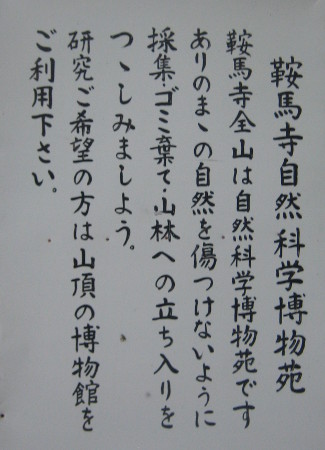 鞍馬寺自然科学博物苑
鞍馬寺全山は自然科学博物苑です
ありのまゝの自然を傷つけないように
採集・ゴミ棄て・山林への立ち入りを
つゝしみましよう。
研究ご希望の方は山頂の博物館を
ご利用下さい。